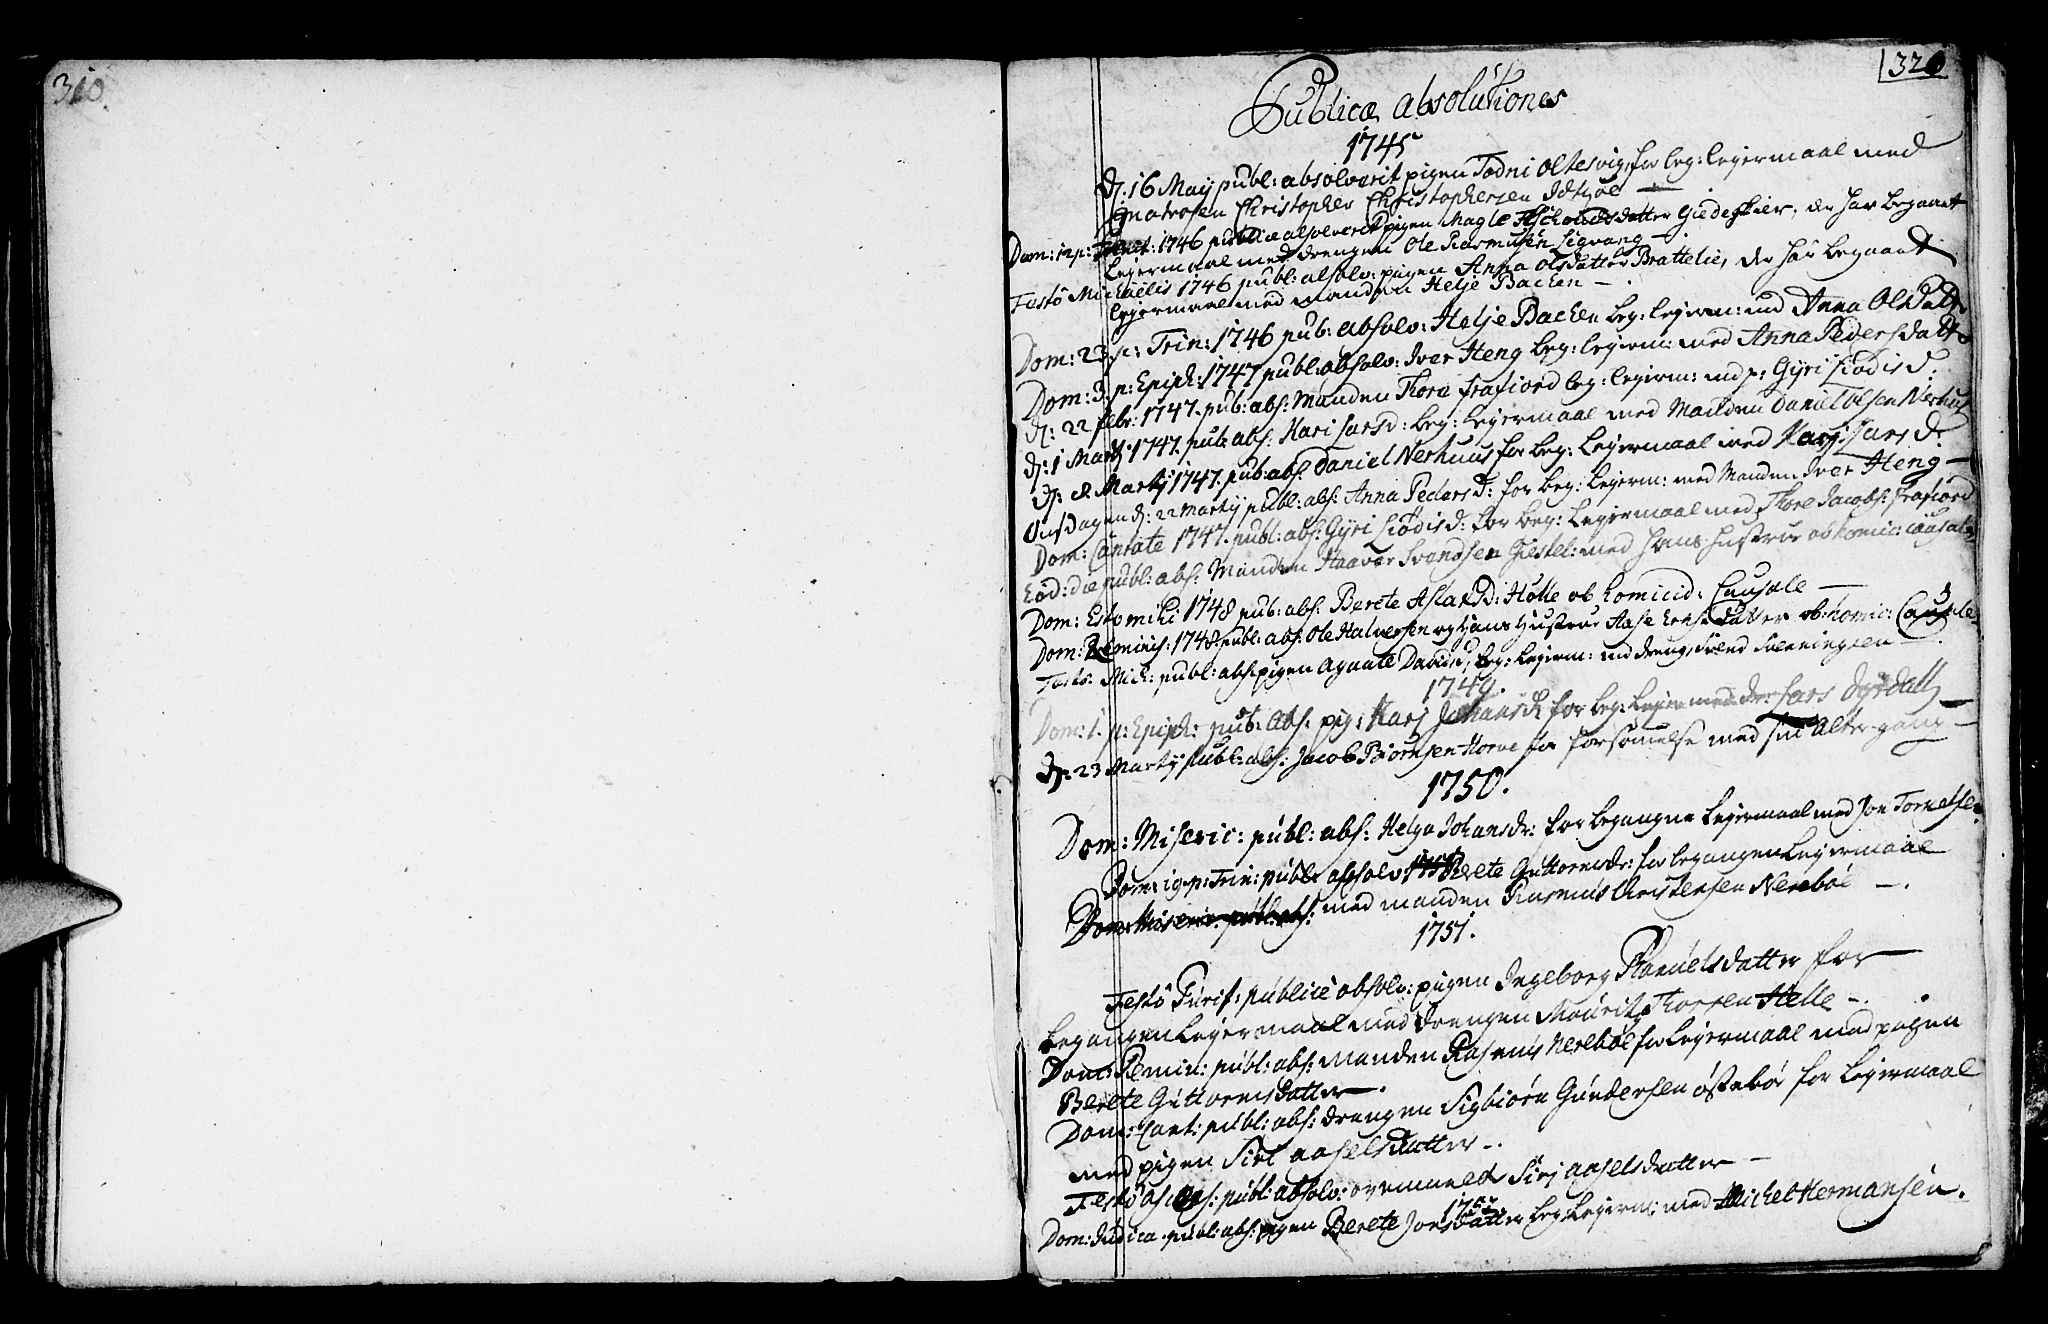 310.
320
Publicæ absolutiones
1745
d: 16 Maij publ: absolverit pigen Todni Oltesvig, for beg: leyermaal med
Matrosen Christopher Christophersen Idsøe —
Dom: 12 p: Trinit: 1746 publice absolverit pigen Magle datter Giedeskier, der har begaaet
Leyermaal med drengen Ole Rasmusen Sigvang —
Festo Michaëlis 1746 publ: absolv: pigen Anna Olsdatter Brattelie, der har begaaet
legermaal med manden Helje Backen — .
Dom: 23 p: Trin: 1746 pub: absolv: Helje Backen beg: legerm: md Anna Olsdatt
Dom: 3 p: Epiph: 1747 publ: absolv: Iver Heng beg: legerm: med Anna Pedersdatt
d: 22 febr: 1747. pub: abs: Manden Thore frafiord beg: legerm: md p: Gyri Siødis d:
d: 1 Martij 1747. pub: abs: Kari Larsd: beg: Legermaal med Manden Daniel Olsen Nerhus
d: 8. Martij 1747. pub: abs: Daniel Nerhuus for beg: Legermaal med Karj Lars d:
Onsdagen d: 22 Martij publ: abs: Anna Peders d: for beg: Legerm: med Manden Iver Heng —
Dom: Cantate 1747. publ: abs: Gyri Siødis d: for beg: Legermaal med Thore Jacobs: frafiord
Eod: die publ: abs: Manden Haaver Svendsen Giestel: med hans hustrue ob homic: causale
Dom: Estomihi 1748 pub: abs: Berete Aslaxd: Hølle ob homicid: Causale —
Dom: Reminis: 1748 publ: abs: Ole Halversen og hans Hustrue Aase datter ob: homic: Causale
Festo: Mich: publ: abs: pigen Agaate Davidsd: beg: Legerm: md dreng, Svend Svenningsen —
1749.
Dom: 1. p: Epiph: pub: abs: pig: Karj Johansd: for beg: Leyerm med Lars Dyrdall
d: 23 Martij publ: abs: Jacob Biørnsen Horve for forsømelse med sin Altergang —
1750.
Dom: Miseric: publ: abs: Helga Johansdr: for begangne Leyermaal med Jon Tormodsen.
Dom: 19 p: Trin: publ: absolv: Berete Guttormsdr: for begangen Legermaal
Dom: Miseric: publ: abs: med manden Rasmus Christensen Nerebøe — .
1751.
Festo Purif: publicè absolv: pigen Ingeborg Samuelsdatter for
begangen Leyermaal med drengen Mouritz Thorsen Helle — .
Dom: Remin: publ: abs: Manden Rasmus Nerebøe for Leyermaal med pigen
Berete Guttormsdatter — .
Dom: Cant: publ: abs: drengen Sigbiørn Gundersen Østebøe for Legermaal
med pigen Siri Aaselsdatter — .
Festo Asc: publ: absolv: ovenmeldt Sirj Aaselsdatter —
1752
Dom: Judica. publ: abs: pigen Berete Jonsdatter beg: Legerm: med Michel Hermansen.